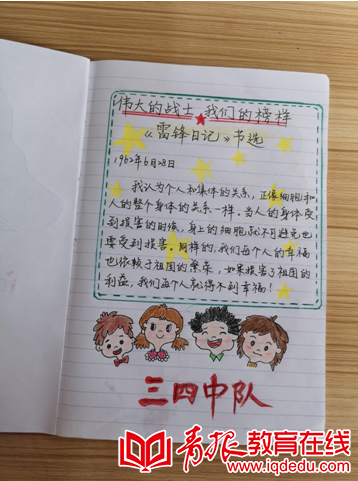 伟大的战士 我们的榜样
《雷锋日记》书选
1962年6月28日
我认为个人和集体的关系,正像细胞和
人的整个身体的关系一样。当人的身体受
到损害的时候,身上的细胞就不可避免也
要受到损害。同样的,我们每个人的幸福
也依赖于祖国的繁荣,如果损害了祖国的
利益,我们每个人就得不到幸福!
三四中队
青报教育在线
www.iqdedu.com